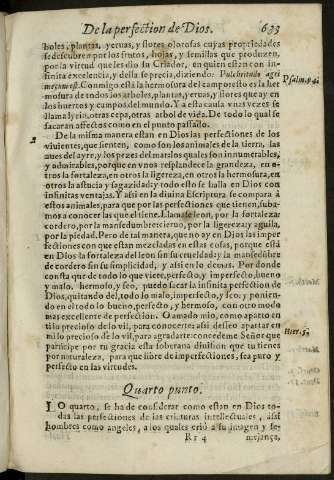 De la perfection de Dios. 633
boles, plantas, yeruas, y flores olorosas cuyas propriedades
se descubren por los frutos, hojas, y semillas que produzen,
por la virtud que les dio su Criador, en quien estan con in-
finita excelencia, y della se precia, diziendo: Pulchritudo agri
mecum est. Conmigo està la hermosura del campo: esto es la her
mosura de todos los arboles, plantas, yeruas, y flores que ay en
los huertos y campos del mundo. Y a esta causa vnas vezes se
llama lyrio, otras cepa, otras arbol de vida. De todo lo qual se
sacaran affectos como en el punto passado.
Psalm. 94.
2 De la misma manera estan en Dios las perfectiones de los
viuientes, que sienten, como son los animales de la tierra, las
aues del ayre, y los pezes del mar: los quales son innumerables,
y admirables, porque en vnos resplandece la grandeza, en o-
tros la fortaleza, en otros la ligereza, en otros la hermosura, en
otros la astucia y sagazidad: y todo esto se halla en Dios con
infinitas ventajas. Y assi en la diuina Escriptura se compara à
estos animales, para que por las perfectiones que tienen, suba-
mos a conocer las que el tiene. Llamase leon, por la fortaleza:
cordero, por la mansedumbre: cieruo, por la ligereza: y aguila,
por la piedad. Pero de tal manera, que no ay en Dios las imper
fectiones con que estan mezcladas en estas cosas, porque està
en Dios la fortaleza del leon sin su crueldad: y la mansedũbre
de cordero sin su simplicidad, y assi en lo demas. Por donde
consta que de todo lo que viere, perfecto, y imperfecto, bueno
y malo, hermoso, y feo, puedo sacar la infinita perfection de
Dios, quitando del, todo lo malo, imperfecto, y feo: y ponien-
do en el todo lo bueno, perfecto, y hermoso, con otro modo
mas excelente de perfection. O amado mio, como aparto en
ti lo precioso de lo vil, para conocerte: assi deseo apartar en
mi lo precioso de lo vil, para agradarte: concedeme Señor que
participe por tu gracia esta soberana diuision que tu tienes
por naturaleza, para que libre de imperfectiones, sea puro y
perfecto en las virtudes.
Hier. 5.
Quarto punto.
LO quarto, se ha de considerar como estan en Dios to-
das las perfectiones de las criaturas intellectuales, assi
hombres como angeles, a los quales criò a su imagen y se-
Rr 4 mejança,